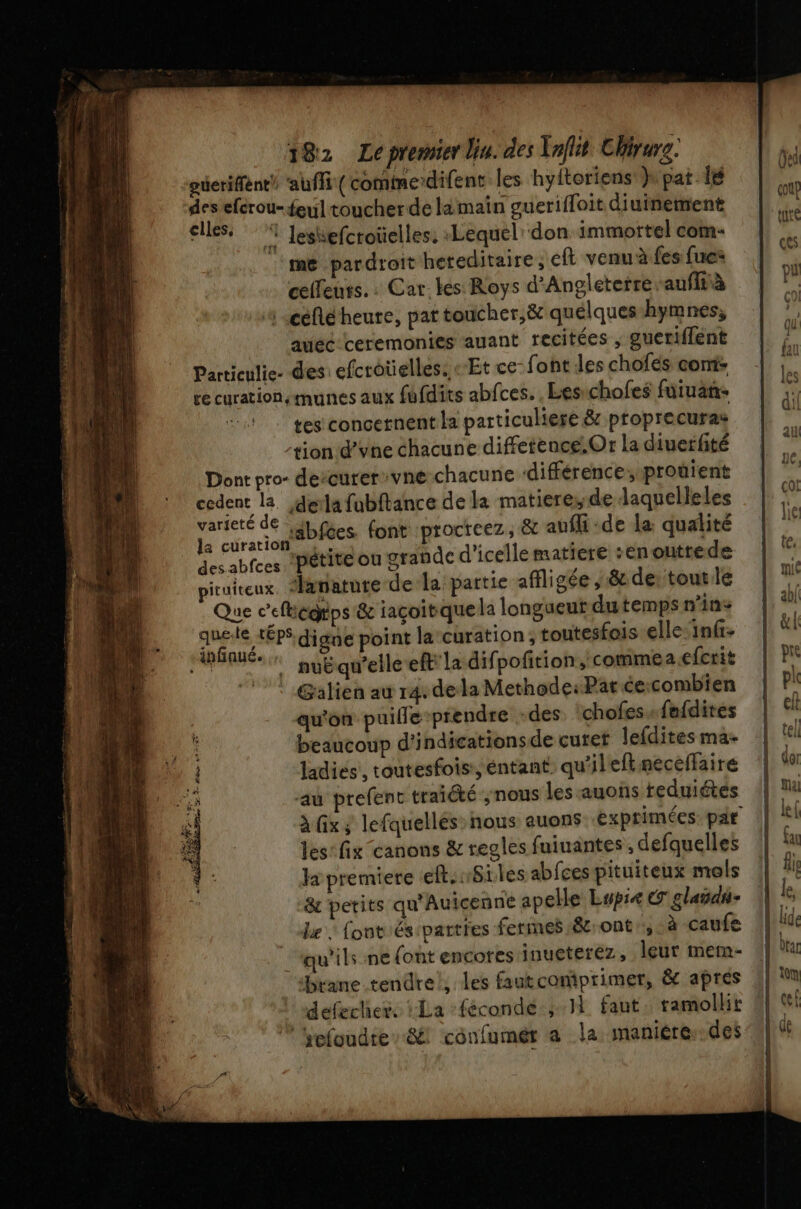 182 Le premier liu. des Inſtit Chirurg.
gueriſſent aussi (comme diſent les hyſtoriens) par le
des eſcrou- ſeul toucher de la main gueriſſoit diuinement
elles. les eſcroüelles. Lequel don immortel com-
me par droit hereditaire, eſt venu à ſes ſuc-
ceſſeurs. Car les Roys d'Angleterre auſſi à
ceſte heure, par toucher, & quelques hymnes,
auec ceremonies auant recitées, gueriſſent
Particulie- des eſcroüelles. Et ce ſont les choſes com-
re curation. munes aux ſuſdits abſces. Les choſes ſuiuan-
tes concernent la particuliere & propre cura-
tion d'vne chacune difference. Or la diuerſité
Dont pro- de curer vne chacune difference, prouient
cedent la de la ſubſtance de la matiere, de laquelle les
varieté de abſces ſont procreez, & auſſi de la qualité
la curation
des abſces petite ou grande d'icelle matiere : en outre de
pituiteux la nature de la partie affligée, & de tout le
Que c'eſt corps & iaçoit que la longueur du temps n'in-
que le tẽps digne point la curation, toutesfois elle inſi-
inſinué. nuë qu'elle eſt la diſpoſition, comme a eſcrit
Galien au 14. de la Methode. Par ce combien
qu'on puiſſe prendre des choſes ſuſdites
beaucoup d'indications de curer leſdites ma-
ladies, toutesfois, entant qu'il eſt neceſſaire
au preſent traicté, nous les auons reduictes
à ſix; leſquelles nous auons exprimées par
les ſix canons & regles ſuiuantes, deſquelles
la premiere eſt. Si les abſces pituiteux mols
& petits qu'Auicenne apelle Lupiæ & glandu-
læ, ſont és parties fermes & ont, à cauſe
qu'ils ne ſont encores inueterez, leur mem-
brane tendre, les faut comprimer, & apres
deſecher. La ſeconde, Il faut ramollir
reſoudre & conſumer a la maniere des